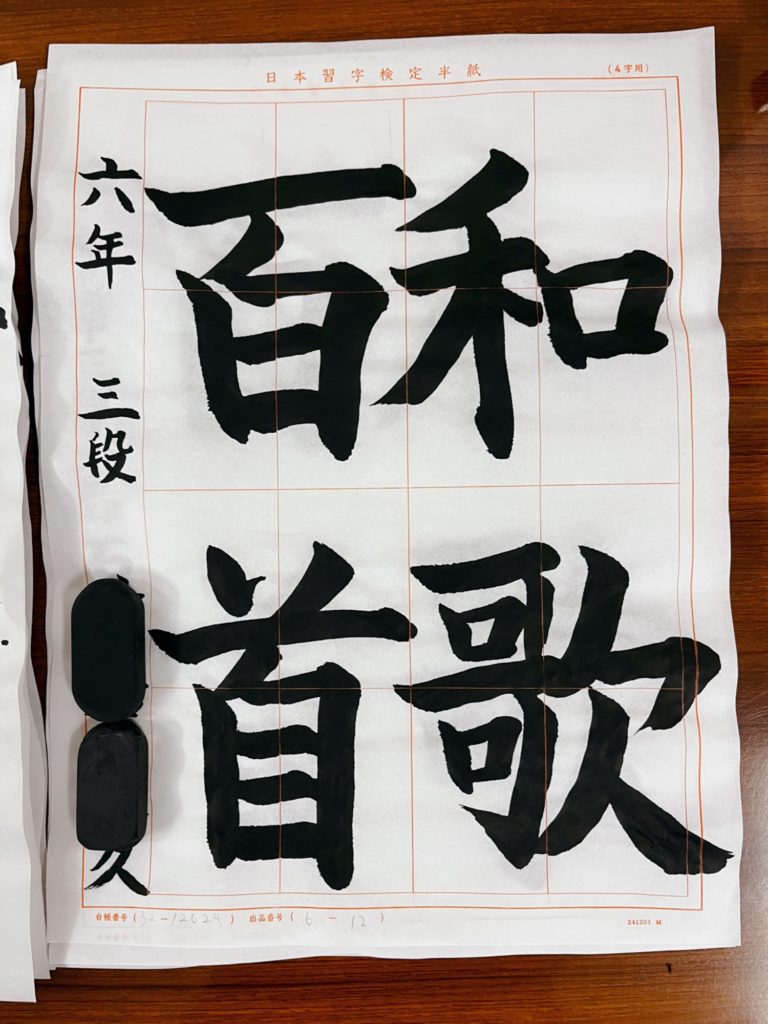 日本習字検定半紙
(4字用)
和歌
百首
六年 三段
久
台帳番号(32-12624) 出品番号(6-12)
241201